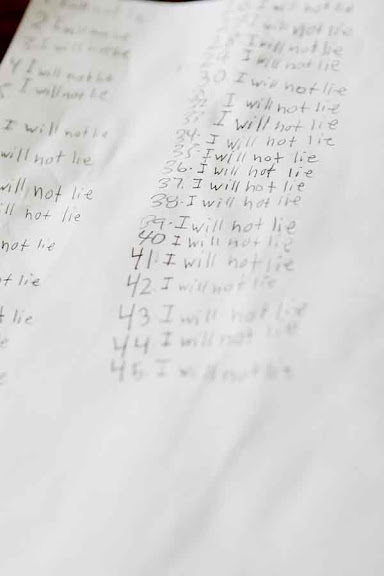 2 I will not lie
3 I will not lie
4 I will not lie
5 I will not lie
I will not lie
will not lie
will not lie
ill not lie
not lie
t lie
t lie
I will not lie
I will not lie
I will not lie
30 I will not lie
I will not lie
I will not lie
34. I will not lie
35. I will not lie
36. I will not lie
37. I will not lie
38. I will not lie
39. I will not lie
40 I will not lie
41. I will not lie
42. I will not lie
43 I will not lie
44 I will not lie
45 I will not lie